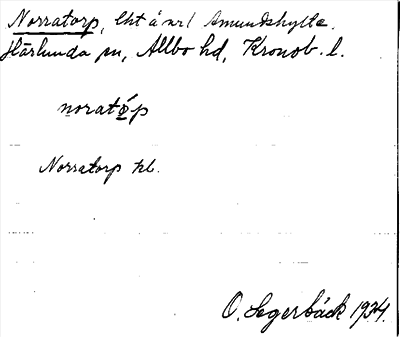 Norratorp, lht å nr 1 Amundshylte.
Härlunda sn, Allbo hd, Kronob. l.
noratǫ́p
Norratorp kl.
O. Segerbäck 1934.